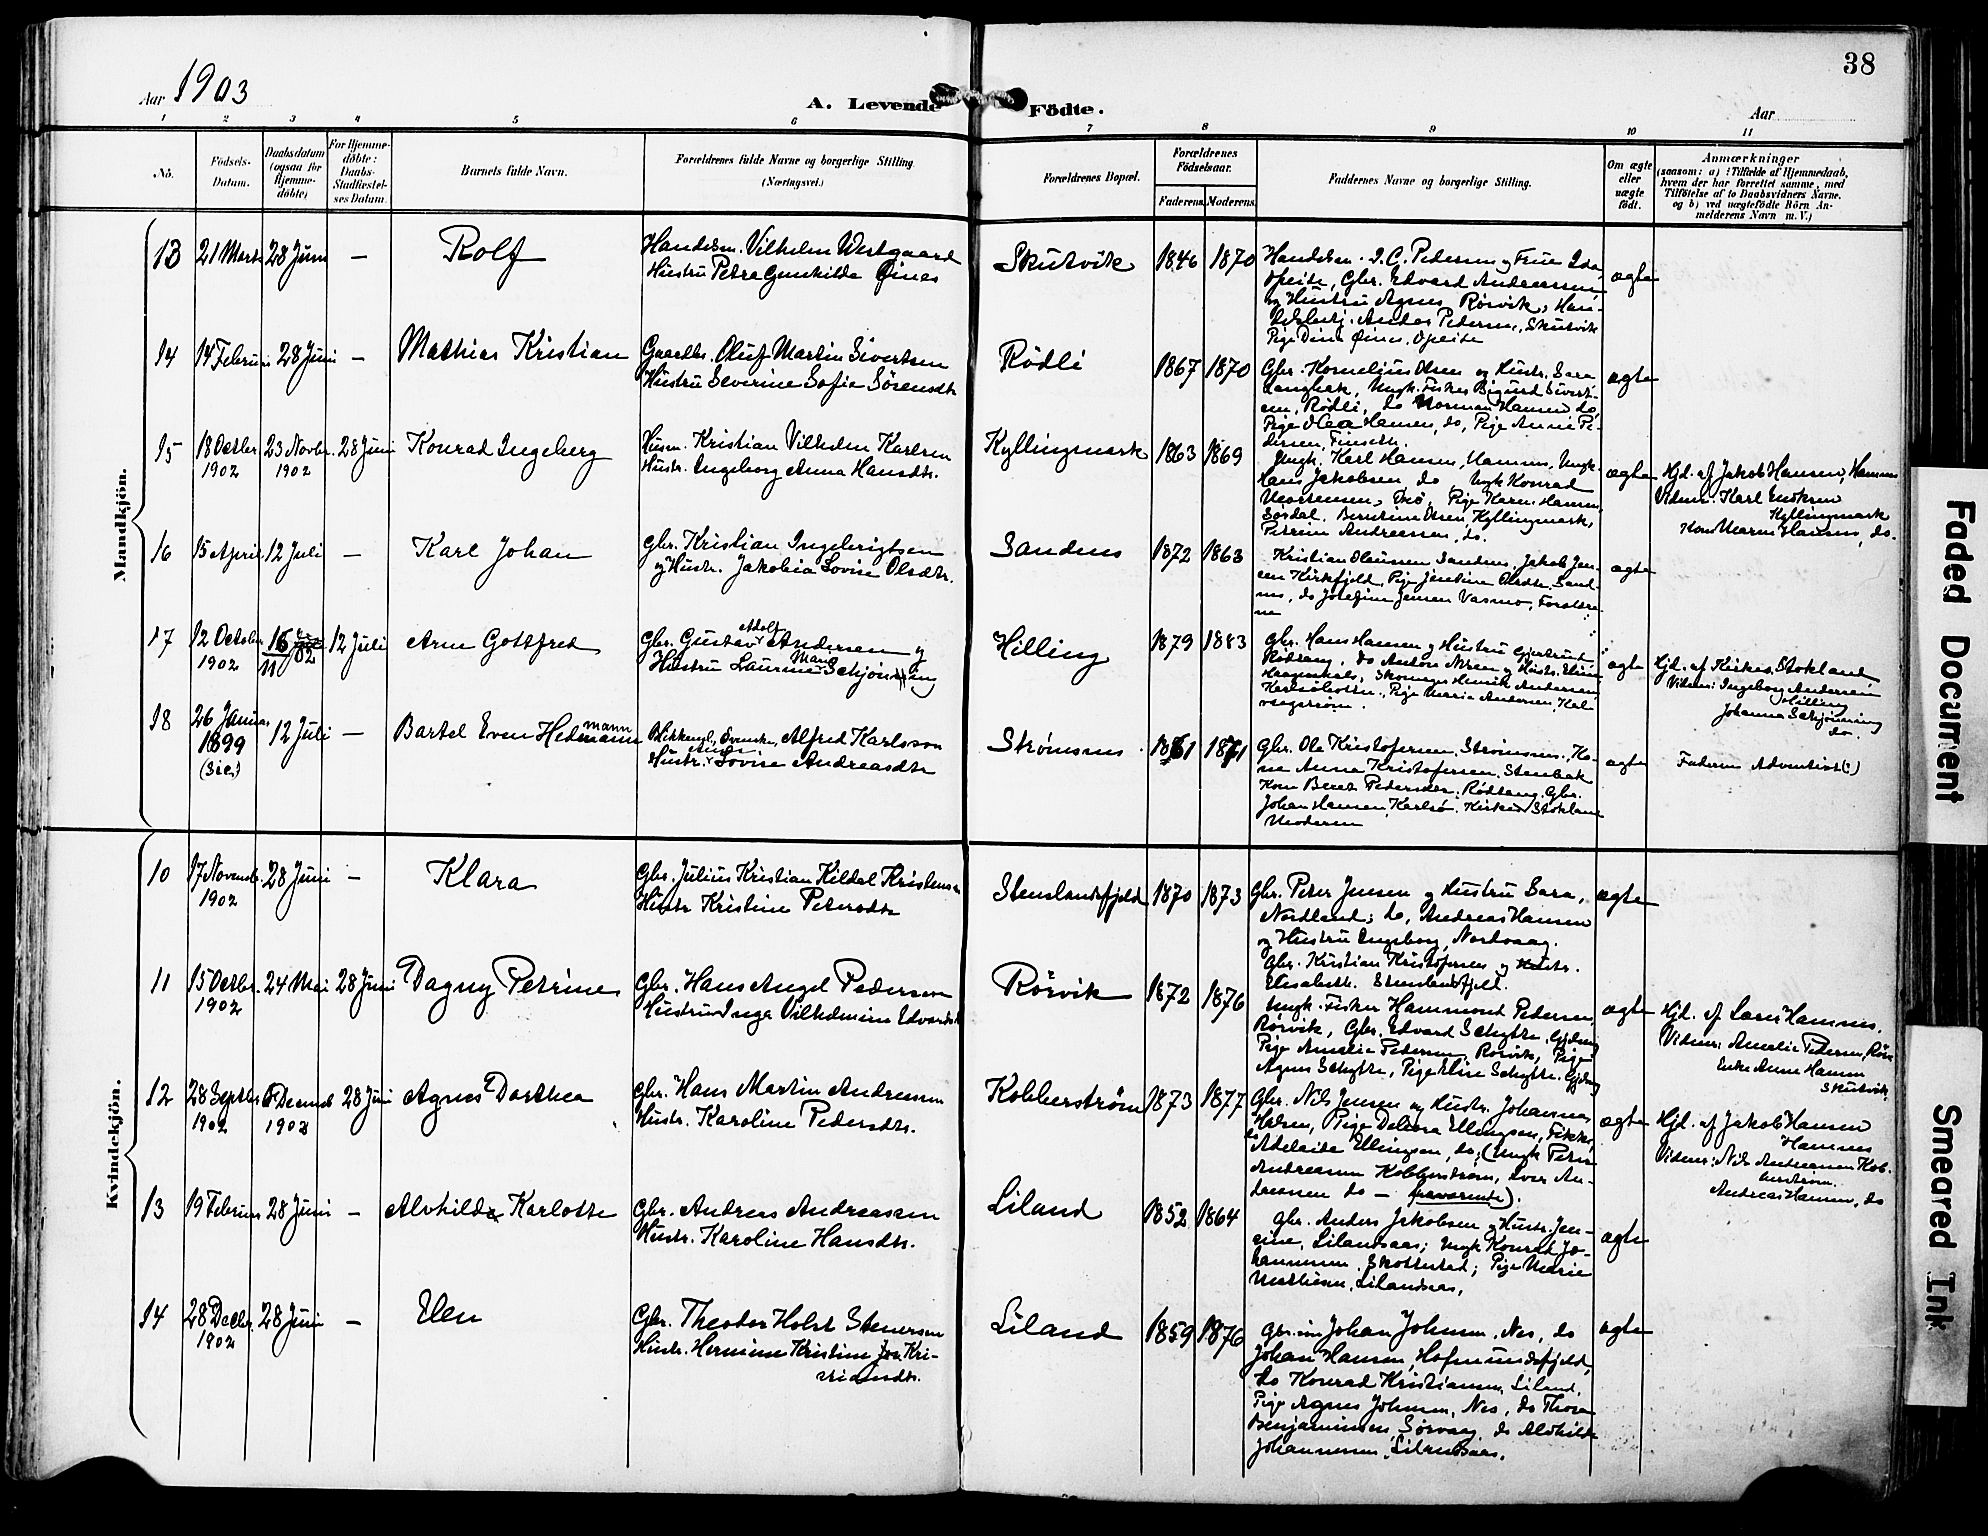 38
Aar 1903
A. Levende Födte.
Aar
1 2 3 4 5 6 7 8 9 10 11
No.
Födsels-
Datum.
Daabsdatum
(ogsaa for
Hjemme-
döbte)
For Hjemme-
döbte:
Daabs-
Stadfæstel-
ses Datum.
Barnets fulde Navn.
Forældrenes fulde Navne og borgerlige Stilling.
(Næringsvei.)
Forældrenes Bopæl.
Forældrenes
Födselsaar.
Faderens. Moderens.
Faddernes Navne og borgerlige Stilling.
Om ægte
eller
uægte
födt.
Anmærkninger
(saasom: a) i Tilfælde af Hjemmedaab,
hvem der har forrettet samme, med
Tilföielse af to Daabsvidners Navne.
og b) ved uægtefödte Börn An-
melderens Navn m. V.)
Mandkjön.
13 21 Marts 28 Juni — Rolf
Handelsm. Vilhelm Westgaard
Hustru Petra Gunhilda Øines
Skutvik 1846 1870
Handelsm. I. C. Pedersen og Frue Ida
Opeide, Gbr. Edvard Andreassen
og Hustru Agnes, Rørvik, Han-
delsbetj. Anders Pedersen, Skutvik
Pige Dina Øines, Opeide
ægte
14 14 Februar 28 Juni — Mathias Kristian
Gaardbr. Oluf Martin Sivertsen
Hustru Severine Sofie Sørensdtr.
Rødli 1867 1870
Gbr. Kornelius Olsen og Hustr. Sara
Langbak, Ungk. Fisker Sigurd Sivert-
sen, Rødli, do Norman Hansen do,
Pige Olea Hansen, do, Pige Anna Pe-
dersen, Finseth.
ægte
15 18 Octbr. 1902 23 Novbr. 1902 28 Juni Konrad Ingeberg
Husm. Kristian Vilhelm Karlsen
Hustr. Ingeborg Anna Hansdtr.
Kyllingmark 1863 1869
Ungk. Karl Hansen, Hamnes, Ungk.
Hans Jakobsen, do, Ungk Konrad
Mortensen, Pige Karen Hansen,
Sørdal, Berntine Olsen, Kyllingmark,
Petrine Andreassen, do.
ægte
Hjd. af Jakob Hansen, Hamnes
Vidner: Karl Endresen
Kyllingmark
Kone Maren Hansen, do.
16 15 April 12 Juli — Karl Johan
Gbr. Kristian Ingebrigtsen
og Hustr. Jakobia Lovise Olsdtr.
Sandnes 1872 1863
Kristian Olaussen Sandnes, Jakob Jen-
sen Kirkfjeld, Pige Jensine Olsdtr. Sand-
nes, do Josefine Jensen Vasmo, Forældre-
ne
ægte
17 12 October 1902 16/11 02 12 Juli Arne Gottfred
Gbr. Gustav Adolf Andersen og
Hustru Laurense Marie Schjønning
Hilling 1879 1883
Gbr. Hans Hansen og Hustru Gjertrud
Rødtang, do Anton
Skomager Henrik Andersen
Pige Maria Andersen,
ægte
Hjd. af Kirkes. Stokland
Vidner: Ingeborg Andersen
Hilling
Johanna Schjønning
do.
18 26 Januar 1899 (sic!) 12 Juli — Bartel Even Hedmann
Blikkensl., Svenske, Alfred Karlsson
Hustr. Lovise Andreasdtr.
Strømsnes 1861 1871
Gbr. Ole Kristofersen, Strømsnes, Ko-
ne Anna Kristofersen, Stenbak
Kone Beret Pedersdtr., Rødtang, Gbr.
Johan Hansen, Karlsø, Kirkes. Stokland
Moderen
ægte
Faderen Adventist(!)
Kvindekjön.
10 17 Novemb. 1902 28 Juni — Klara
Gbr. Julius Kristian Kildal Kristensen
Hustr. Kristine Petersdtr.
Stenslandsfjeld 1870 1873
Gbr. Peter Jensen og Hustru Sara,
Nordland; do, Andreas Hansen
og Hustru Ingeborg, Nordvaag.
Gbr. Kristian Kristofersen og Hustr.
Elisabeth. Stenslandsfjeld.
ægte
11 15 Octbr. 1902 24 Mai 28 Juni Dagny Petrine
Gbr. Hans Angel Pedersen
Hustru Inga Vilhelmine Edvardsdtr
Rørvik 1872 1876
Ungk. Fisker Hammond Pedersen,
Rørvik, Gbr. Edvard Schytte,
Pige Amalie Pedersen, Rørvik, Pige
Agnes Schytte, Pige Elise Schytte,
ægte
Hjd. af Lars Hamnes.
Vidner: Amalie Pedersen, Rørv.
Enke Anne Hansen
Skutvik.
12 28 Septbr. 1902 6 Decemb 1902 28 Juni Agnes Dorthea
Gbr. Hans Martin Andreassen
Hustr. Karoline Pedersdtr.
Kobberstrøm 1873 1877
Gbr. Nils Jensen og Hustr. Johanna,
Pige Delvora Ellingsen,
do Adelaide Ellingsen, do; (Ungk Peder
Andreassen Kobberstrøm, Iver An-
dreassen do — fraværende).
ægte
Hjd. af Jakob Hansen
Hamnes
Vidner: Nils Andreassen Kob-
berstrøm.
Andreas Hansen, do
13 19 Februar 28 Juni — Alvhilda Karlotte
Gbr. Andreas Andreassen
Hustr. Karoline Hansdtr.
Liland 1852 1864
Gbr. Anders Jakobsen og Hustr. Jen-
sine, Lilandsaas; Ungk Konrad Jo-
hannessen, Skottestad; Pige Marie
Mathisen, Lilandsaas,
ægte
14 28 Decbr. 1902 28 Juni — Elen
Gbr. Theodor Holst Stenersen
Hustr. Hermine Kristine Kri-
stiansdtr.
Liland 1859 1876
Johan Johnsen, Nes, do
Johan Hansen, Hofmundsfjeld,
do Konrad Kristiansen, Liland,
Pige Agnes Johnsen, Nes, do Thora
Benjaminsen, Sørvaag, do Alvhilde
Johannesen, Lilandsaas.
ægte
Faded Document
Smeared Ink